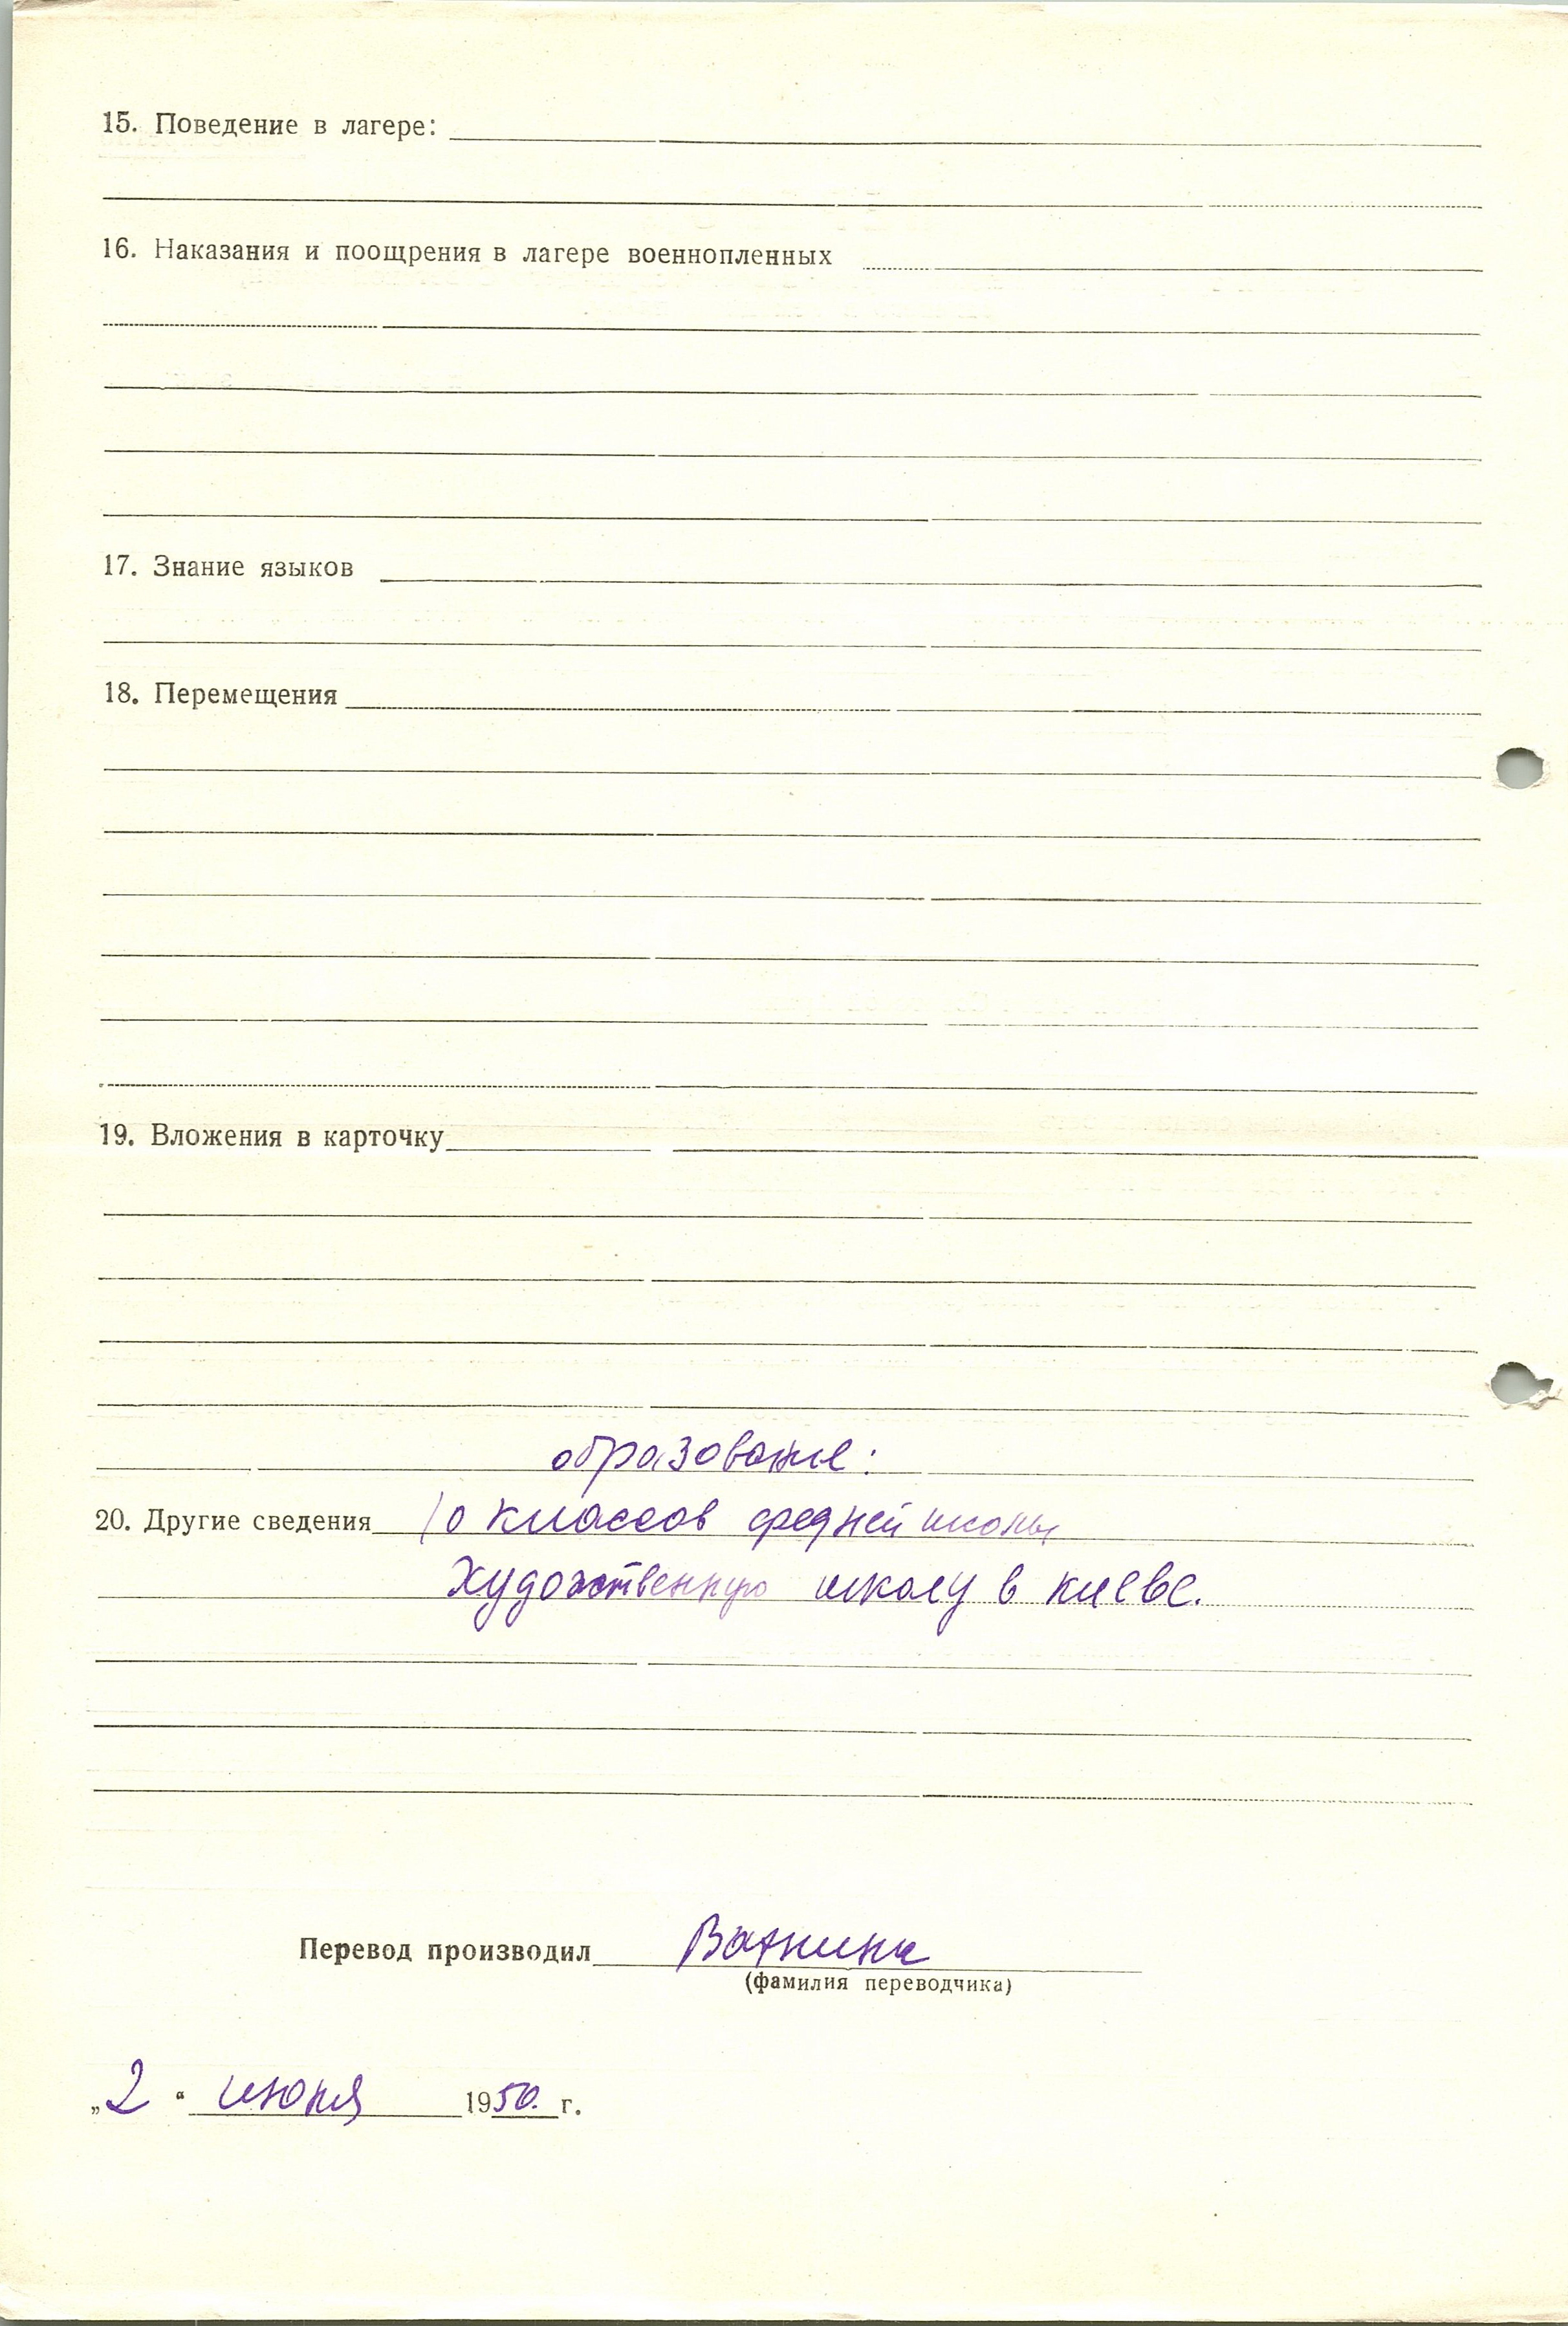 15. Поведение в лагере:
16. Наказания и поощрения в лагере военнопленных
17. Знание языков
18. Перемещения
19. Вложения в карточку
образование:
20. Другие сведения 10 классов средней школы
художественную школу в Киеве.
Перевод производил
(фамилия переводчика)
„2“ июня 1950. г.